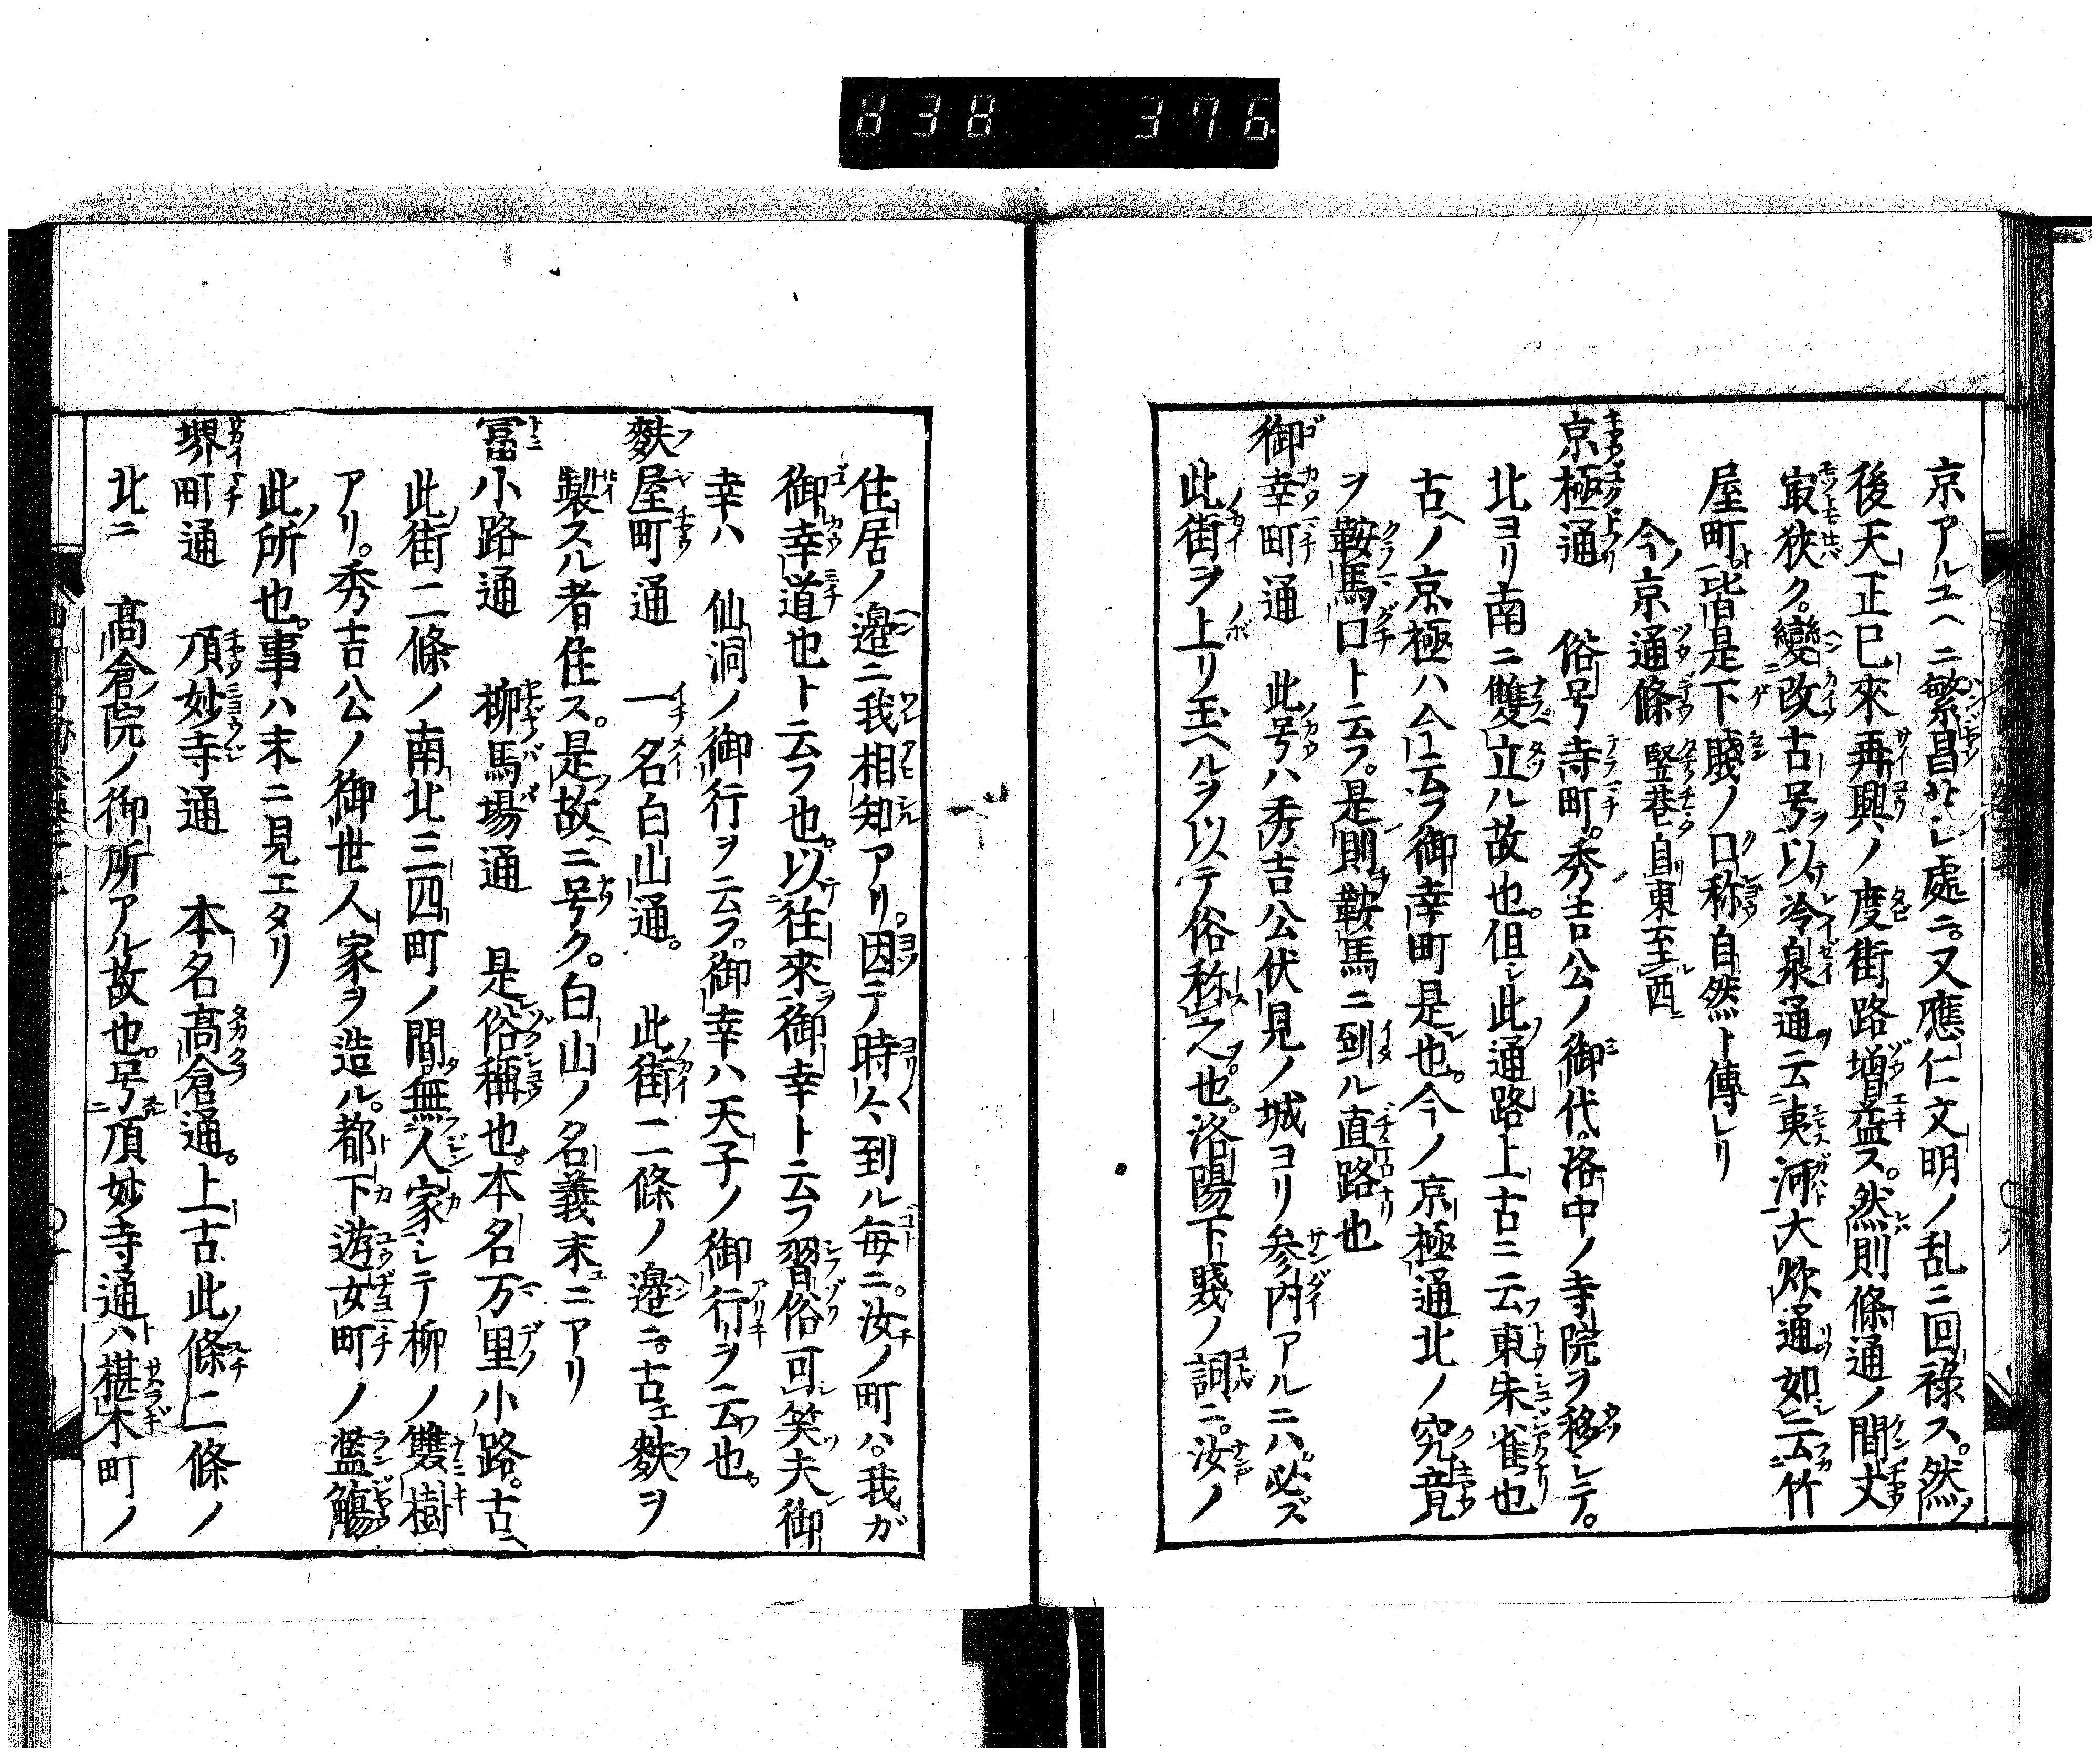 838 376
京アルユヘニ繁昌ナレ處ニ。又應仁文明ノ乱ニ回祿ス。然ノ
後天正已來再興ノ度街路増益ス。然則條通ノ間丈
㝡狹ク。變改古号以冷泉通云夷河大炊通如云竹
屋町。皆是下賤ノ口称自然ト傳レリ
今京通條 竪巷自東至西
京極通 俗号寺町。秀吉公ノ御代洛中ノ寺院ヲ移シテ。
北ヨリ南ニ雙立ル故也。但シ此通路上古ニ云東朱雀也
古ヘノ京極ハ今云フ御幸町是也。今ノ京極通北ノ究竟
ヲ鞍馬口ト云フ。是則鞍馬ニ到ル直路也
御幸町通 此号ハ秀吉公伏見ノ城ヨリ参内アルニハ。必ズ
此街ヲ上リ玉ヘルヲ以テ俗称之也。洛陽下賤ノ詞ニ。汝ノ
住居ノ邉ニ我相知アリ。因テ時々到ル毎ニ。汝ノ町ハ。我ガ
御幸道也ト云フ也。以往來御幸ト云フ習俗可笑夫御
幸ハ 仙洞ノ御行ヲ云フ。御幸ハ天子ノ御行ヲ云也。
麩屋町通 一名白山通。 此街二條ノ邉ニ。古エ麩ヲ
製スル者住ス。是故ニ号ク。白山ノ名義末ニアリ
冨小路通 柳馬場通 是俗稱也。本名万里小路。古ヘ
此街二條ノ南北三四町ノ間無人家シテ柳ノ雙樹
アリ。秀吉公ノ御世人家ヲ造ル。都下遊女町ノ濫觴
此所也。事ハ末ニ見エタリ
堺町通 頂妙寺通 本名髙倉通。上古此條二條ノ
北ニ 髙倉院ノ御所アル故也。号頂妙寺通ハ椹木町ノ